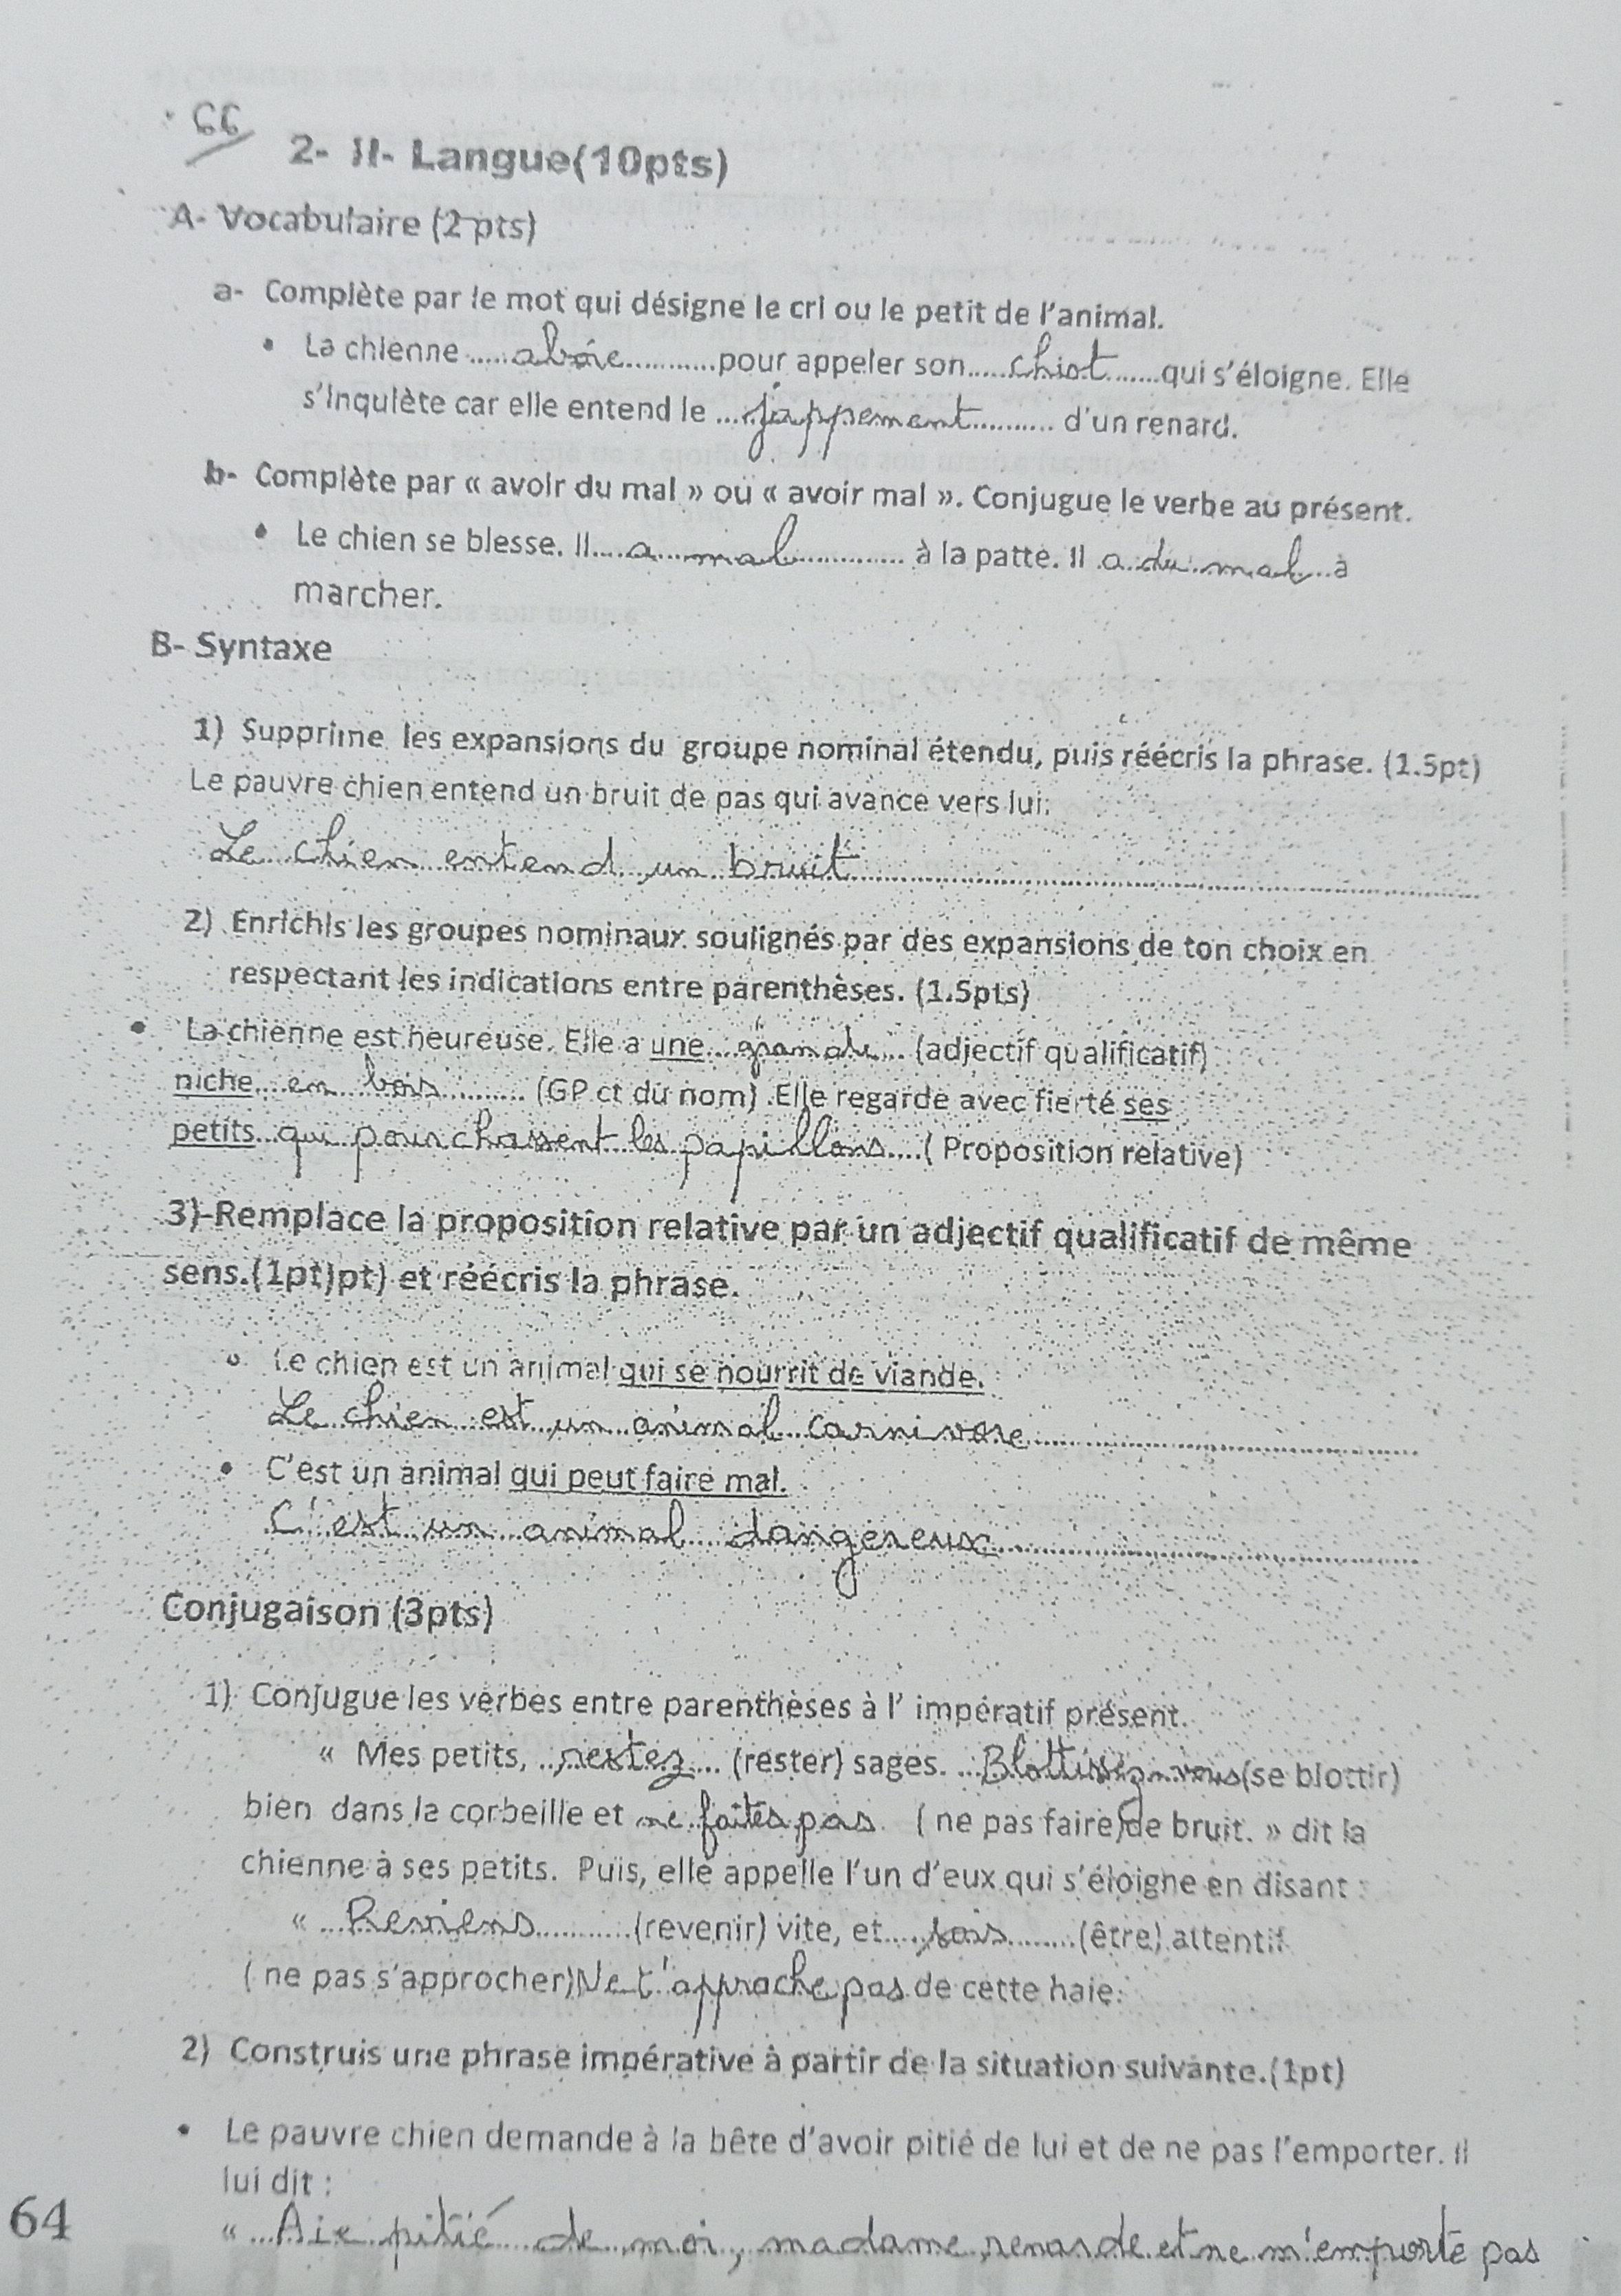 66
2- II- Langue(10pts)
A- Vocabulaire (2 pts)
a- Complète par le mot qui désigne le cri ou le petit de l'animal.
• La chienne .....aboie...........pour appeler son.....chiot......qui s'éloigne. Elle
s'inquiète car elle entend le ....jappement.......... d'un renard.
b- Complète par « avoir du mal » ou « avoir mal ». Conjugue le verbe au présent.
• Le chien se blesse. Il....a...mal............ à la patte. Il .a..du..mal...à
marcher.
B- Syntaxe
1) Supprime les expansions du groupe nominal étendu, puis réécris la phrase. (1.5pt)
Le pauvre chien entend un bruit de pas qui avance vers lui.
Le chien entend un bruit
2) Enrichis les groupes nominaux soulignés par des expansions de ton choix en
respectant les indications entre parenthèses. (1.5pts)
• La chienne est heureuse. Elle a une...grande.... (adjectif qualificatif)
niche....en bois.......... (GP ct du nom) .Elle regarde avec fierté ses
petits..qui pourchassent les papillons....( Proposition relative)
3)-Remplace la proposition relative par un adjectif qualificatif de même
sens.(1pt)pt) et réécris la phrase.
o Le chien est un animal qui se nourrit de viande.
Le chien est un animal carnivore
• C'est un animal qui peut faire mal.
C'est un animal dangereux
Conjugaison (3pts)
1) Conjugue les verbes entre parenthèses à l' impératif présent.
« Mes petits, ..restez... (rester) sages. ...Blottissez-vous(se blottir)
bien dans la corbeille et ne faites pas ( ne pas faire)de bruit. » dit la
chienne à ses petits. Puis, elle appelle l'un d'eux qui s'éloigne en disant :
« ...Reviens...........(revenir) vite, et.....sois........(être) attentif
( ne pas s'approcher)Ne t'approche pas de cette haie.
2) Construis une phrase impérative à partir de la situation suivante.(1pt)
• Le pauvre chien demande à la bête d'avoir pitié de lui et de ne pas l'emporter. Il
lui dit :
« ...Aie pitié de moi, madame renarde et ne m'emporte pas
64